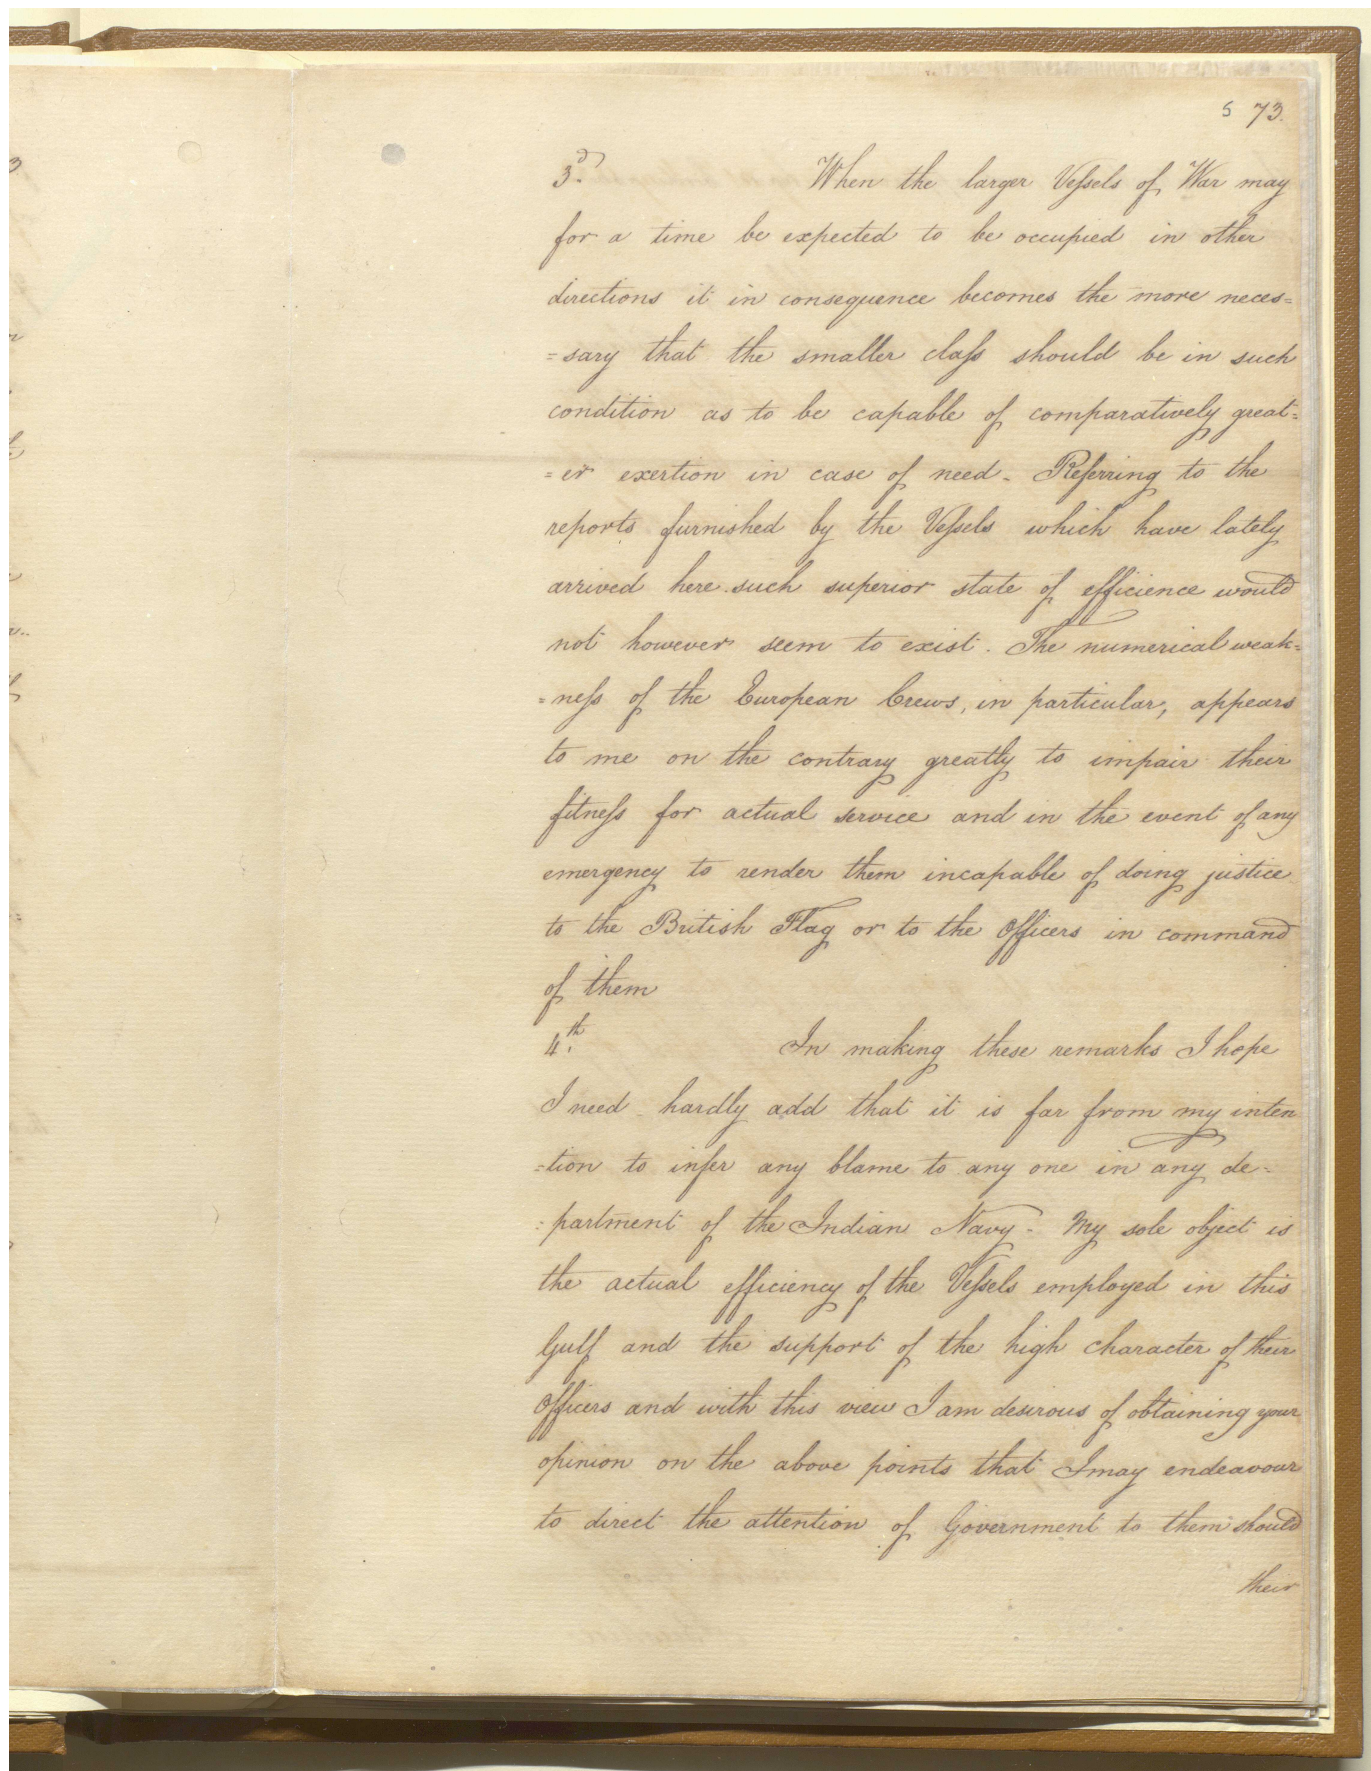 5 73.
3.d When the larger Vessels of War may
for a time be expected to be occupied in other
directions it in consequence becomes the more neces=
=sary that the smaller class should be in such
condition as to be capable of comparatively great=
=er exertion in case of need - Referring to the
reports furnished by the Vessels which have lately
arrived here such superior state of efficience would
not however seem to exist. The numerical weak=
=ness of the European Crews, in particular, appears
to me on the contrary greatly to impair their
fitness for actual service and in the event of any
emergency to render them incapable of doing justice
to the British Flag or to the Officers in command
of them
4.th In making these remarks I hope
I need hardly add that it is far from my inten
=tion to infer any blame to any one in any de=
=partment of the Indian Navy - My sole object is
the actual efficiency of the Vessels employed in this
Gulf and the support of the high character of their
Officers and with this view I am desirous of obtaining your
opinion on the above points that I may endeavour
to direct the attention of Government to them should
their